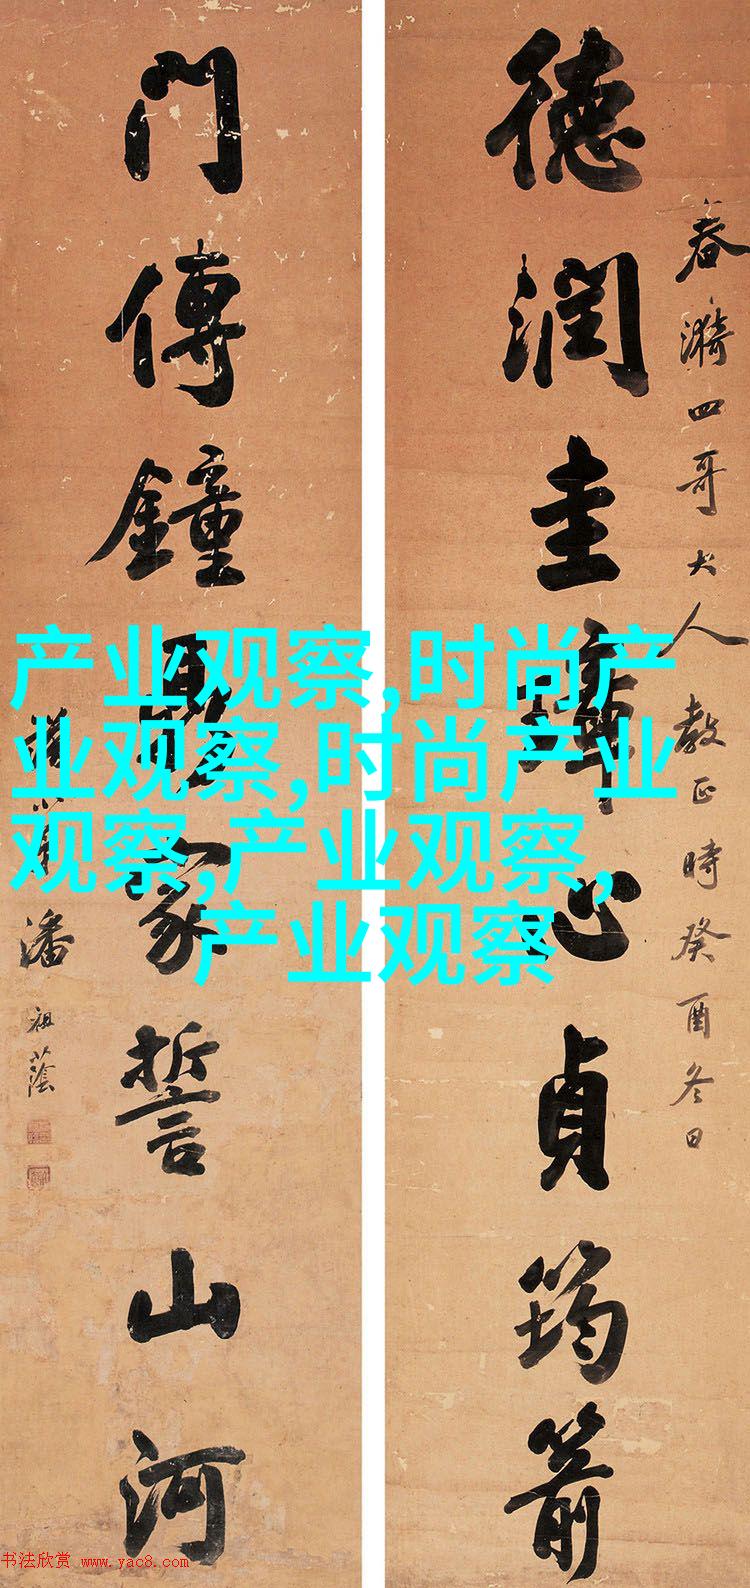 德潤圭璋心貞筠箭
春漪四哥大人教正時癸酉冬日
門傳鐘鼎家誓山河
潘祖蔭
产业观察,时尚产
业观察,时尚产业
观察,产业观察,
产业观察
书法欣赏 www.yac8.com